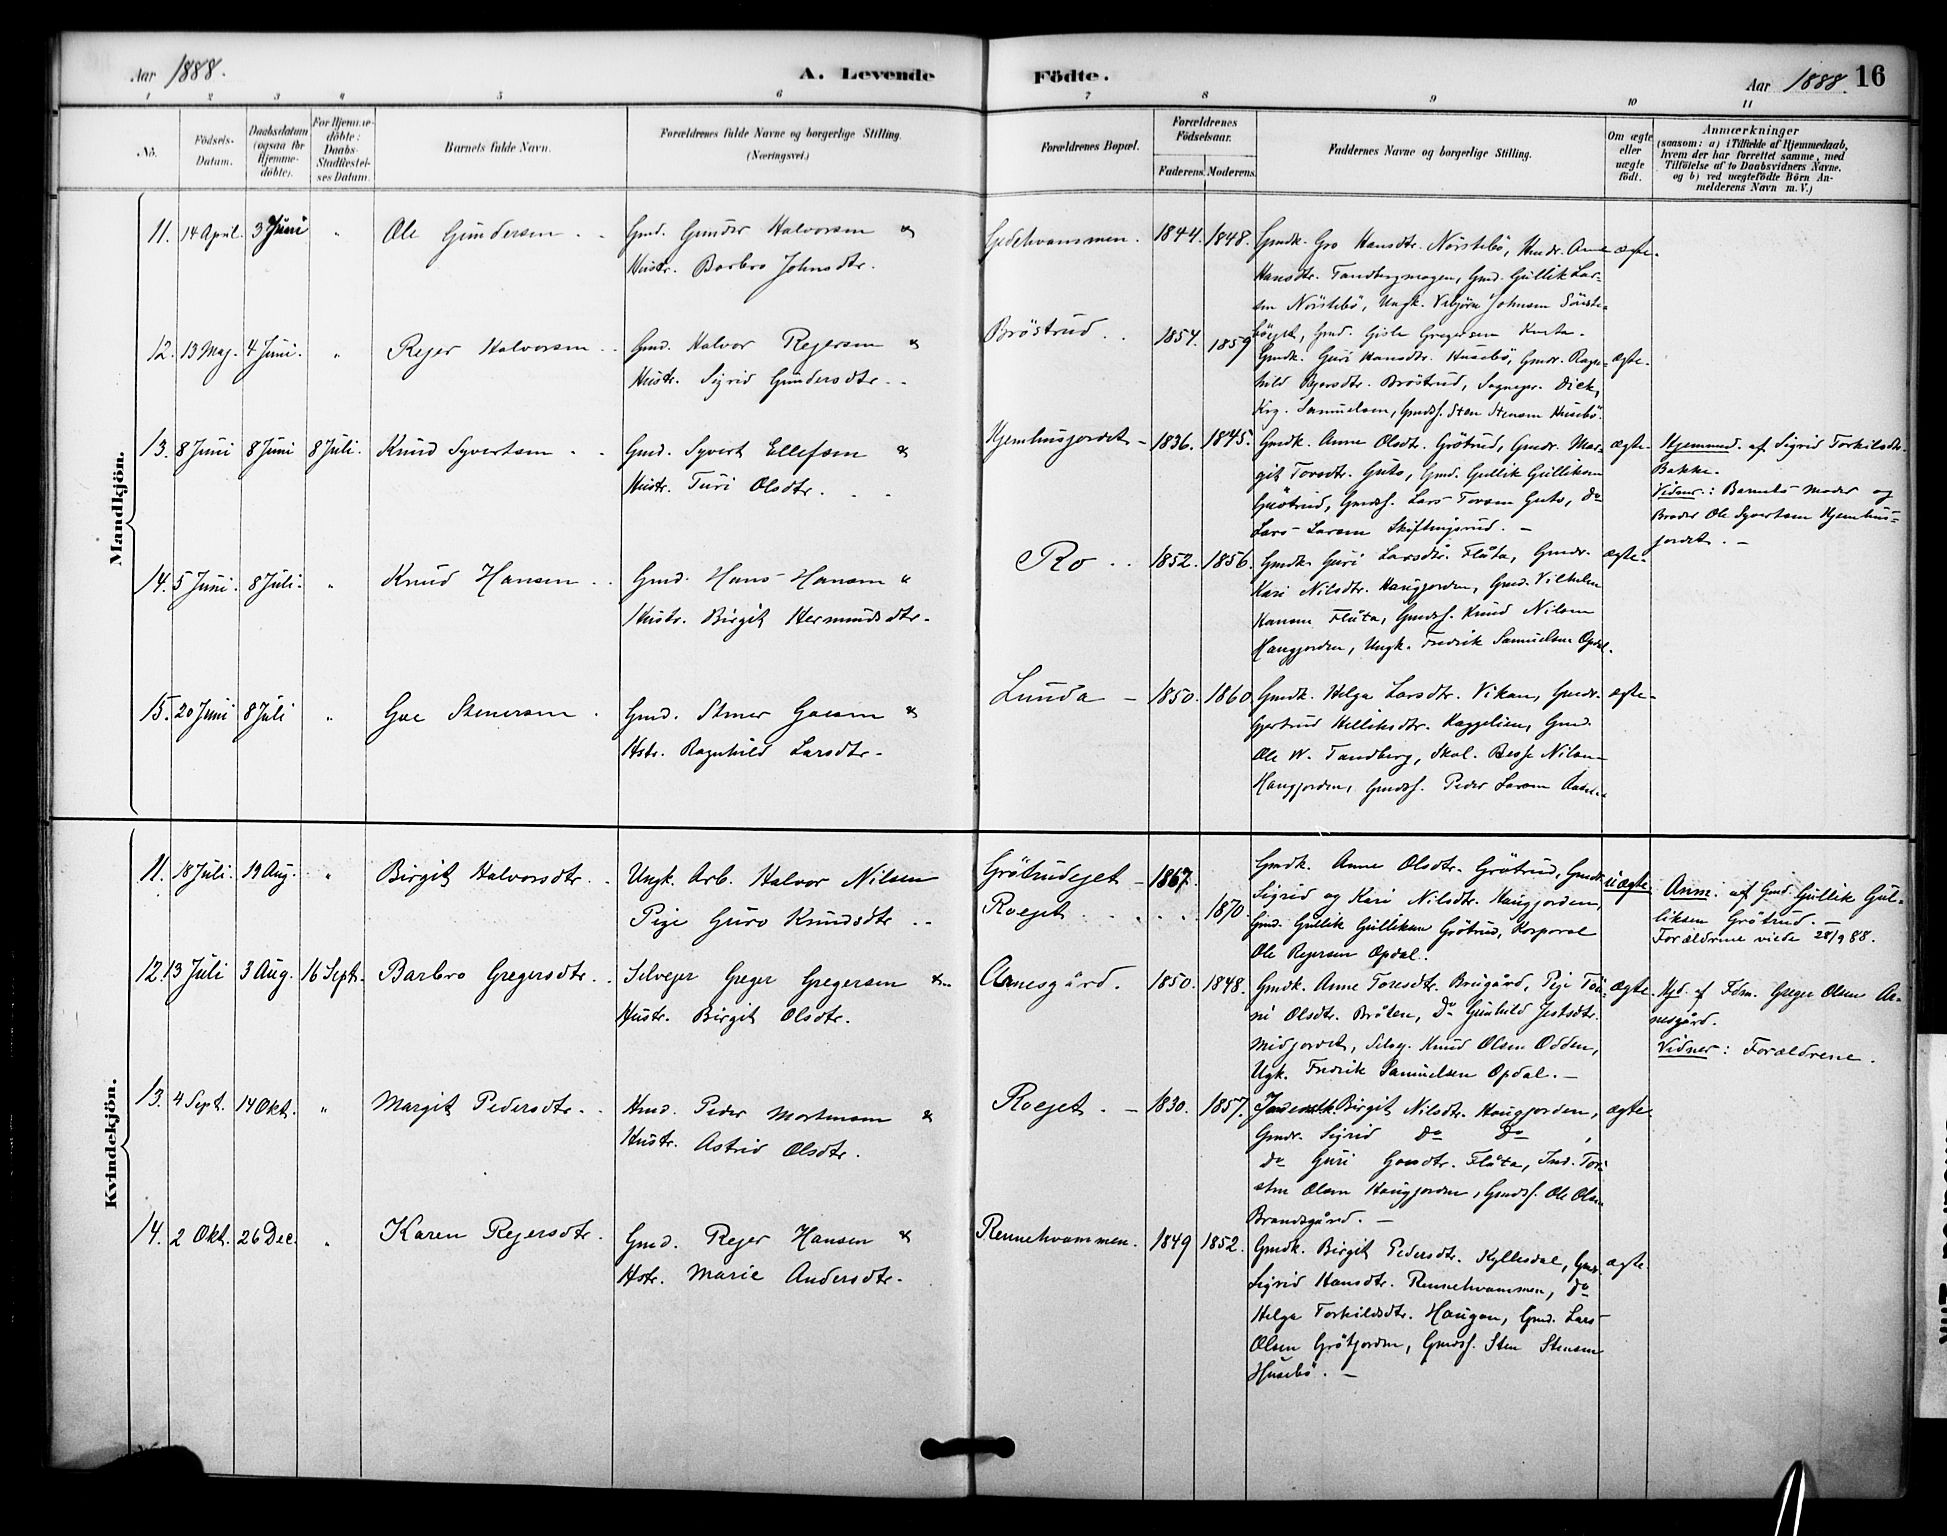 Aar 1888.
A. Levende
Födte.
Aar 1888. 16
1 2 3 4 5 6 7 8 9 10 11
No.
Födsels-
Datum.
Daabsdatum
(ogsaa for
Hjemme-
döbte).
For Hjemme-
döbte:
Daabs-
Stadfæstel-
ses Datum.
Barnets fulde Navn.
Forældrenes fulde Navne og borgerlige Stilling.
(Næringsvei.)
Forældrenes Bopæl.
Forældrenes
Födselsaar.
Faderens. Moderens.
Faddernes Navne og borgerlige Stilling.
Om ægte
eller
uægte
födt.
Anmærkninger
(saasom: a) i Tilfælde af Hjemmedaab,
hvem der har forrettet samme, med
Tilföielse af to Daabsvidners Navne.
og b) ved uægtefödte Börn An-
melderens Navn m. V.)
Mandkjön.
11. 14 April. 3 Juni " Ole Gundersen . .
Gmd. Gunder Halvorsen &
Hustr. Barbro Johnsdtr.
Gjedehvammen. 1844. 1848.
Gmdk. Gro Hansdtr. Nörstebö, Hmdr. Anne
Hansdtr. Tandbergmogen, Gmd. Gullik Lar-
sen Nörstebö, Ungk. Vebjörn Johnsen Sönste-
böeget, Gmd. Gisle Gregersen Kunta.
ægte.
12. 13 Maj. 4 Juni. " Rejer Halvorsen . .
Gmd. Halvor Rejersen &
Hustr. Sigrid Gundersdtr. . .
Bröstrud . . 1854. 1859
Gmdk. Guri Hansdtr. Husebö, Gmdr. Ragn-
hild Rejersdtr. Bröstrud, Sognepr. Dick,
Kirg. Samuelsen, Gmdsf. Sten Stensen Husebö.
ægte.
13. 8 Juni 8 Juni 8 Juli. Knud Syvertsen . .
Gmd. Syvert Ellefsen &
Hustr. Turi Olsdtr. . .
Hjemhusjordet - 1836. 1845.
Gmdk. Anne Olsdt. Grötrud, Gmdr. Mar-
git Torsdtr. Guto, Gmd. Gullik Gulliksen
Grötrud, Gmdsf. Lars Torsen Guto, Do
Lars Larsen Skiftingsrud. -
ægte.
Hjemmed. af Sigrid Torkilsdtr.
Bakke.
Vidner: Barnets Moder og
Broder Ole Syvertsen Hjemhus-
jordet. -
14. 5 Juni. 8 Juli. " Knud Hansen . .
Gmd. Hans Hansen "
Hustr. Birgit Hermundsdtr.
Ro . . 1852. 1856.
Gmdk. Guri Larsdtr. Flåta, Gmdr.
Kari Nilsdtr. Haugjorden, Gmd. Vilhelm
Hansen Flåta, Gmdsf. Knud Nilsen
Haugjorden, Ungk. Fredrik Samuelsen Opdal.
ægte.
15. 20 Juni 8 Juli " Goe Stenersen .
Gmd. Stener Goesen &
Hstr. Ragnhild Larsdtr.
Lunda - 1850. 1860
Gmdk. Helga Larsdtr. Vikan, Gmdr.
Gjertrud Helliksdtr. Kaggelien, Gmd.
Ole W. Tandberg, Skol. Besse Nilsen
Haugjorden, Gmdsf. Peder Larsen
ægte.
Kvindekjön.
11. 18 Juli. 19 Aug. " Birgit Halvorsdtr. .
Ungk. Arb. Halvor Nilsen
Pige Guro Knudsdtr . .
Grötrudejet - 1867.
Roejet . . . . . 1870.
Gmdk. Anne Olsdtr. Grötrud, Gmdk.
Sigrid og Kari Nilsdtr. Haugjorden,
Gmd. Gullik Gulliksen Grötrud, Korporal
Ole Rejersen Opdal.
uægte
Anm. af Gmd. Gullik Gul-
liksen Grötrud. -
Forældrene viede 28/9 88.
12. 13 Juli 3 Aug. 16 Sept. Barbro Gregersdtr. .
Selvejer Greger Gregersen &
Hustr. Birgit Olsdtr.
Arnesgård. 1850. 1848.
Gmdk. Anne Toresdtr. Brugård, Pige Tor-
ni Olsdtr. Bråten, Do Gunhild Jestsdtr.
Midjordet, Selvg. Knud Olsen Odden,
Ugk. Fredrik Samuelsen Opdal. -
ægte.
Hjd. af Fdm. Greger Olsen Ar-
nesgård.
Vidner: Forældrene.
13. 4 Sept. 14 Okt. " Margit Pedersdtr. .
Hmd. Peder Mortensen &
Hustr. Astrid Olsdtr.
Roejet. - 1830. 1857.
Birgit Nilsdtr. Haugjorden,
Gmdr. Sigrid Do Do,
Do Guri Goesdtr. Flåta, Ind. Tor-
sten Olsen Haugjorden, Gmdsf. Ole Olsen
Brandsgård. -
ægte.
14. 2 Okt. 26 Dec. " Karen Rejersdtr. .
Gmd. Rejer Hansen &
Hstr. Marie Andersdtr.
Rennehvammen. 1849 1852.
Gmdk. Birgit Pedersdtr. Kyllesdal, Gmdr.
Sigrid Hansdtr. Rennehvammen, Do
Helga Torkildsdtr. Haugan, Gmd. Lars
Olsen Gråtjorden, Gmdsf. Sten Stensen
Husebö. -
ægte.